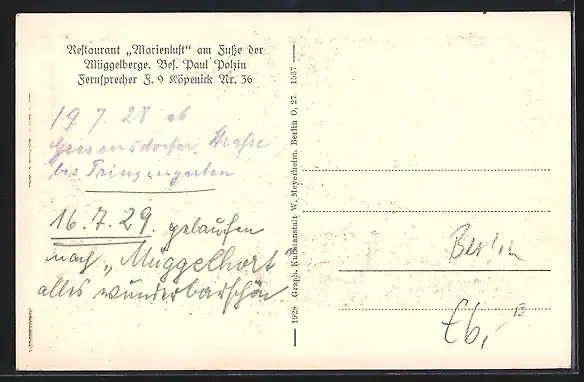 Restaurant „Marienlust" am Fuße der
Müggelberge. Bes. Paul Polzin
Fernsprecher F. 9 Köpenick Nr. 36
19 7. 28 ab
Straße
bis Prinzengarten
16. 7. 29. gelaufen
nach „Müggelhort"
alles wunderbarschön
1928 Graph. Kunstanstalt W. Meyerheim, Berlin O. 27. 1537
Berlin